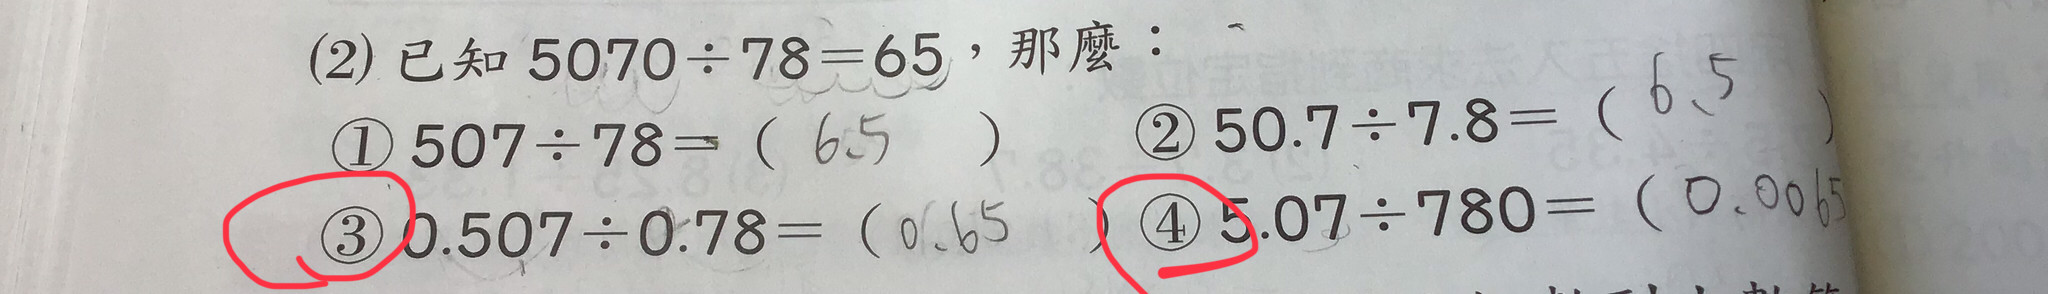 (2) 已知 5070÷78=65，那麼：
① 507÷78=( 6.5 ) ② 50.7÷7.8=( 6.5 )
③ 0.507÷0.78=( 0.65 ) ④ 5.07÷780=( 0.0065